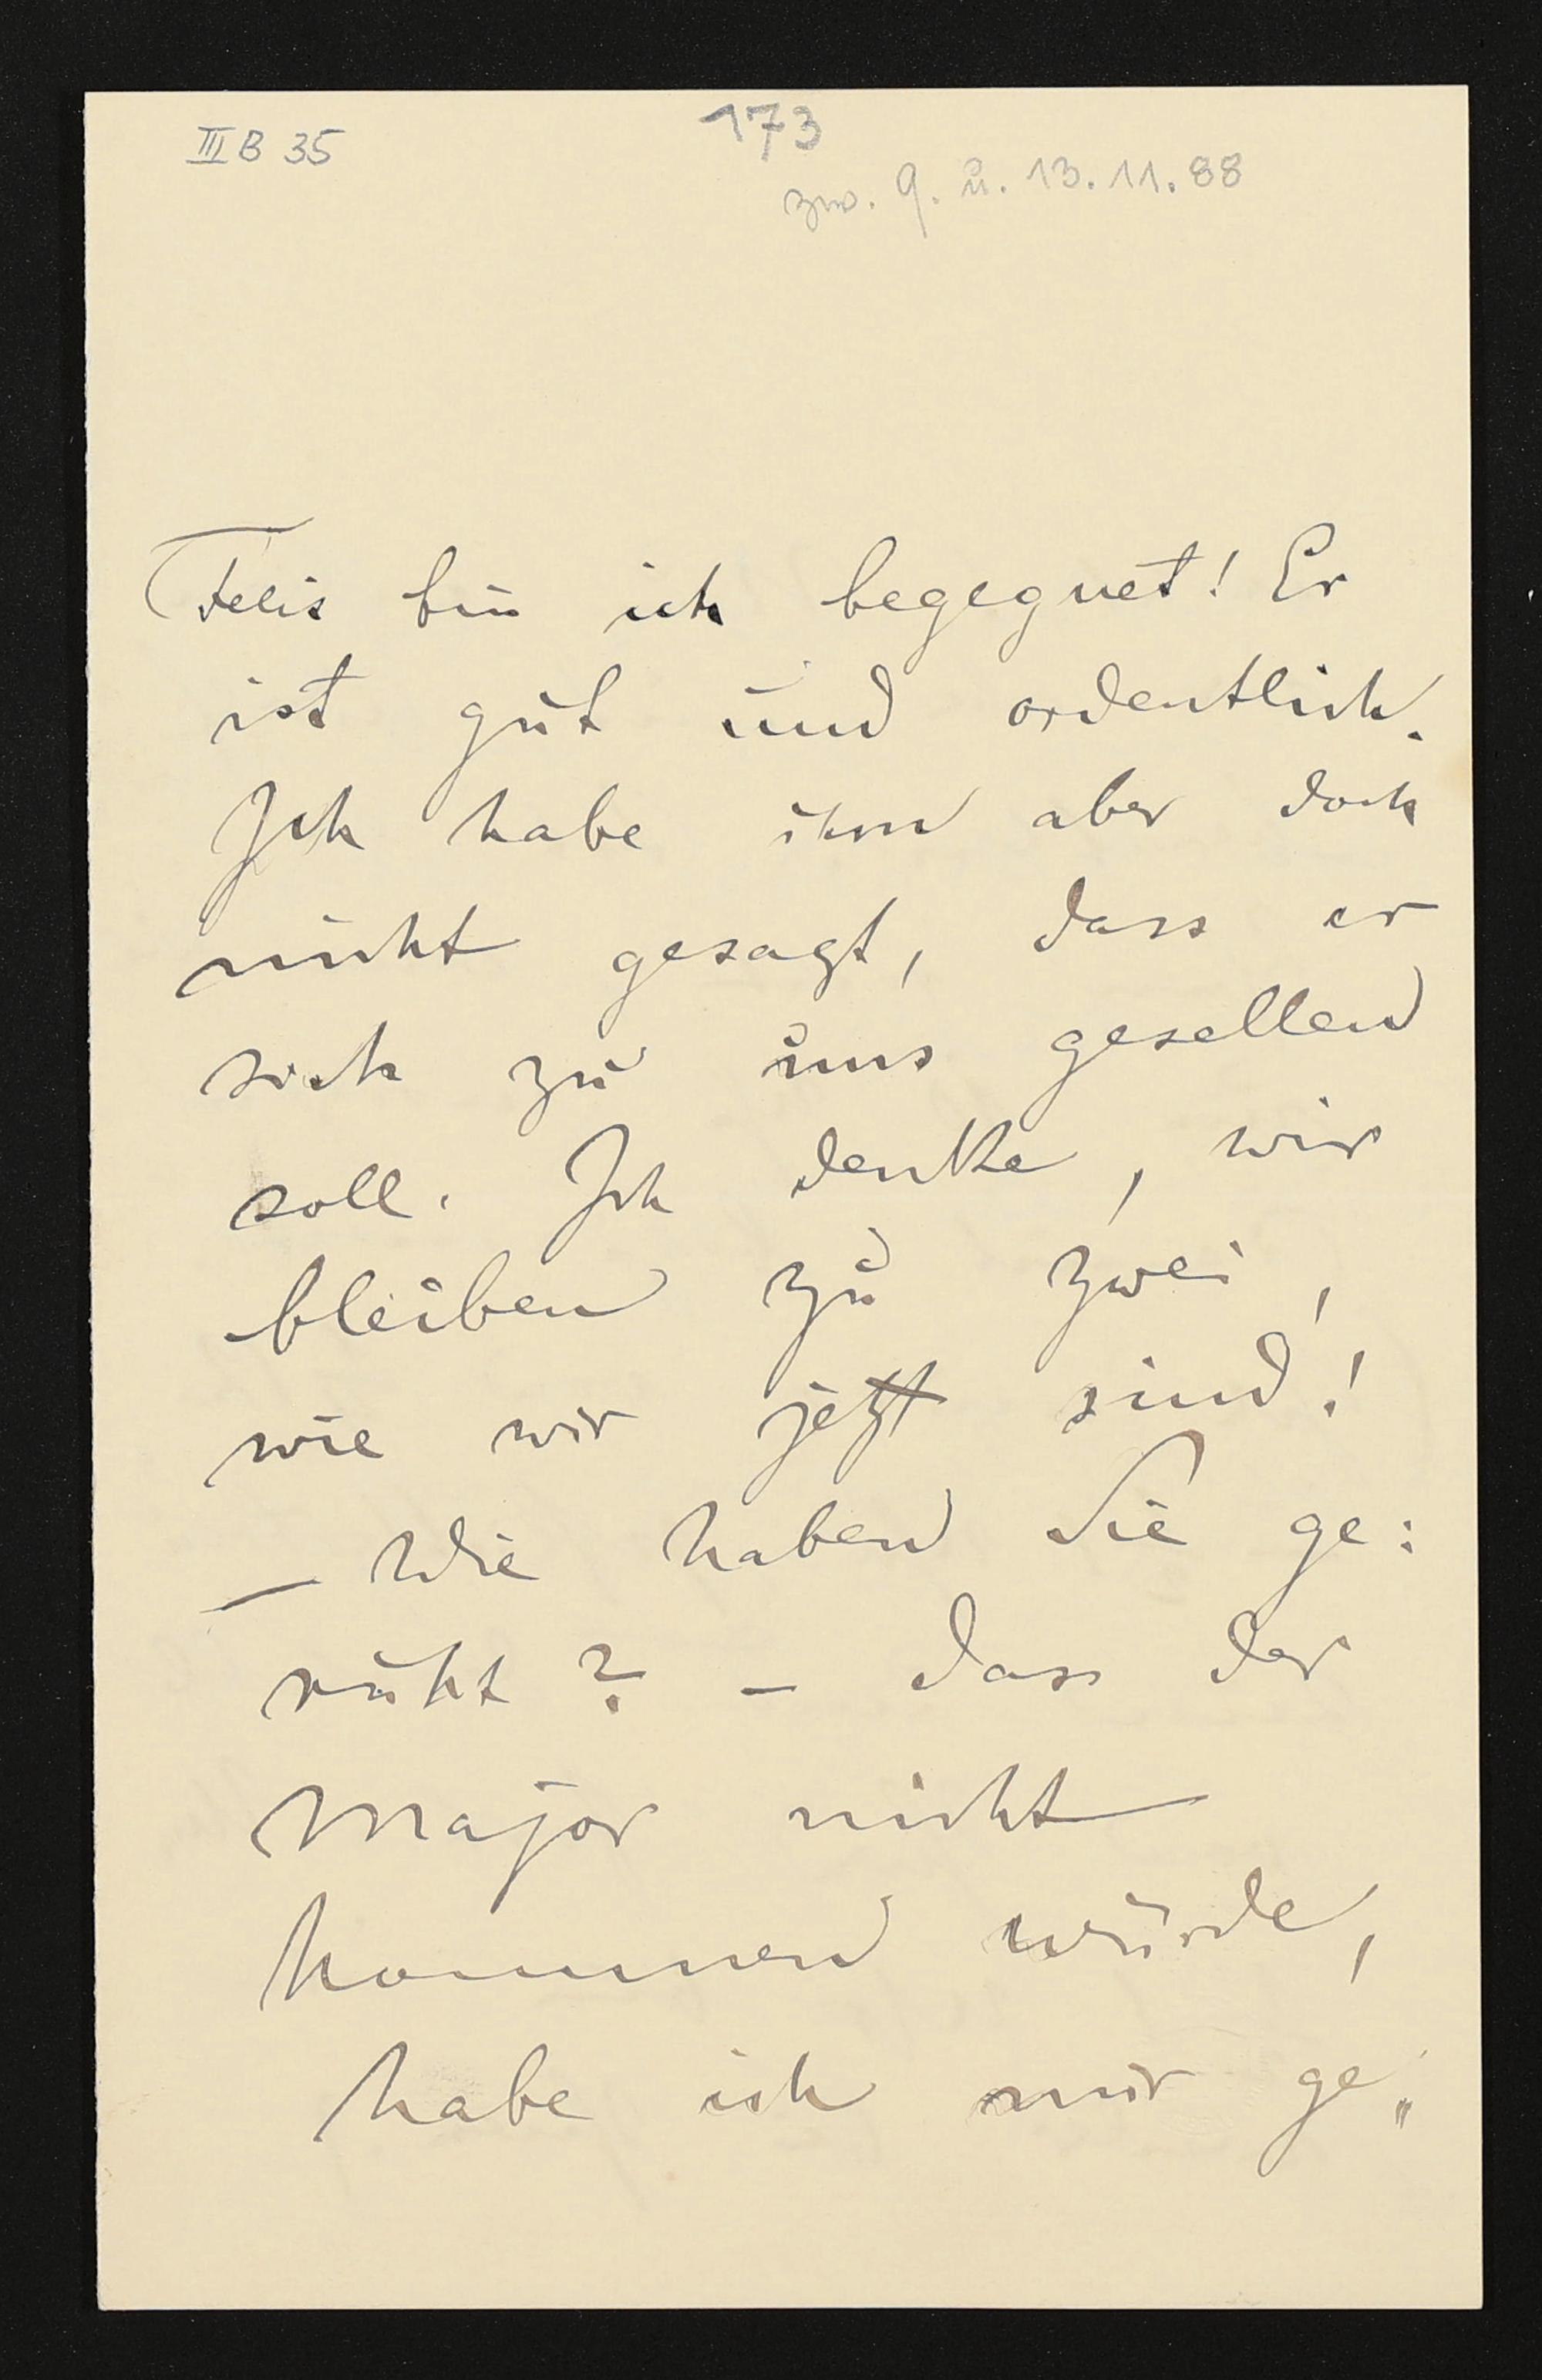 III B 35
173
zw. 9. u. 13. 11. 88
Felix bin ich begegnet! Er
ist gut und ordentlich.
Ich habe ihm aber doch
nicht gesagt, dass er
sich zu uns gesellen
soll. Ich denke, wir
bleiben zu zwei,
wie wir jetzt sind!
– Wie haben Sie ge:
ruht? – dass der
Major nicht
kommen würde,
habe ich mir ge„